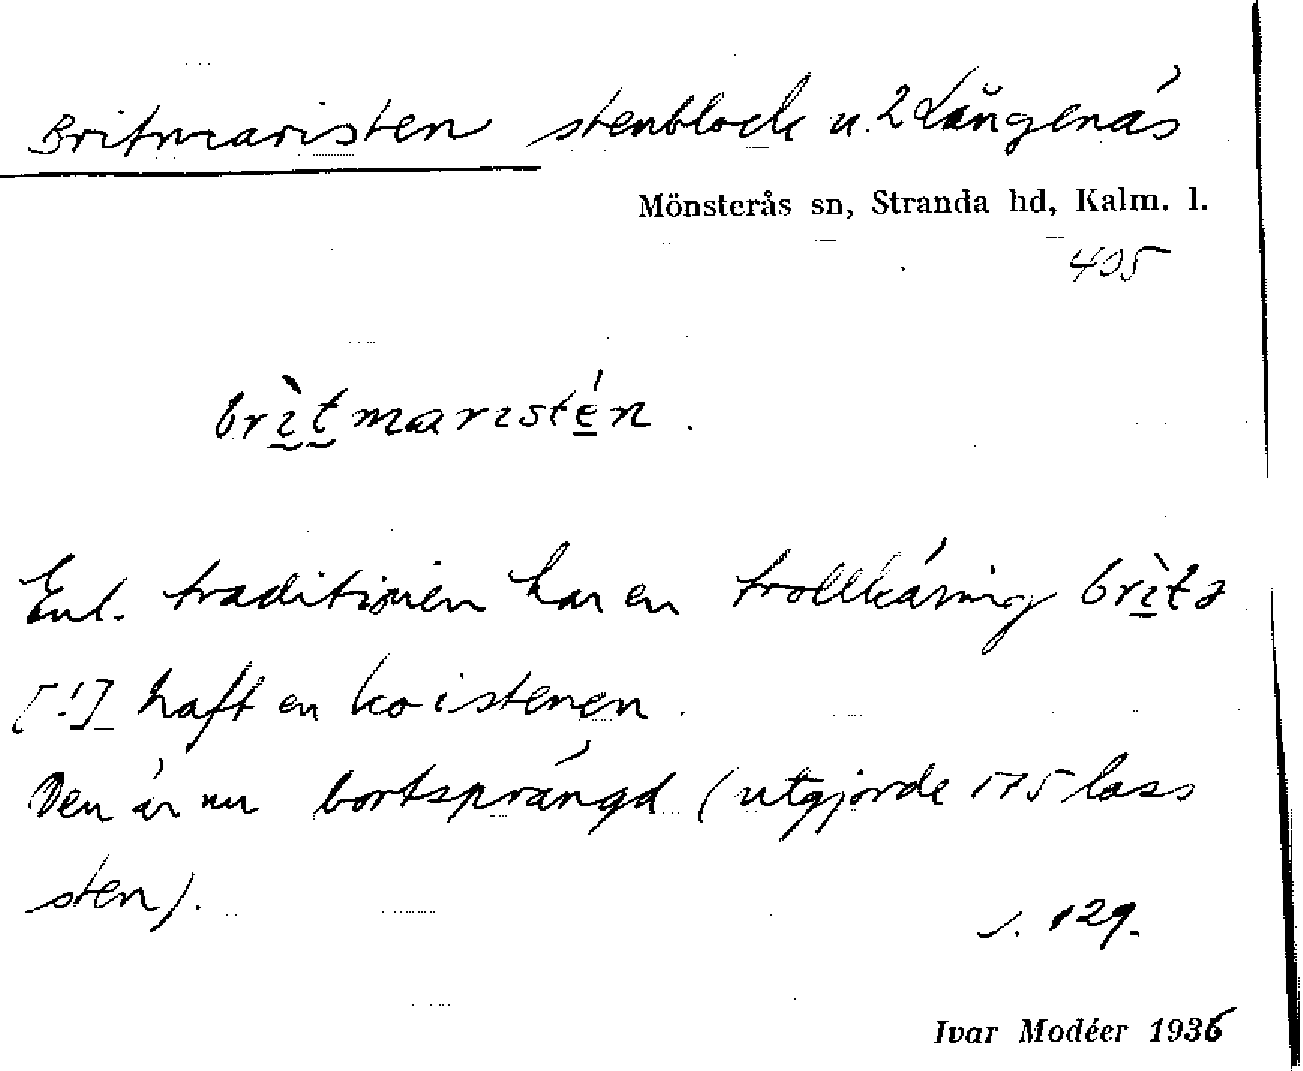 Britmaristen stenblock u. 2 Långenäs
Mönsterås sn, Stranda hd, Kalm. l.
405
brìtmaristén.
Enl. traditionen har en trollkäring brìta
[!] haft en ko i stenen.
Den är nu bortsprängd (utgjorde 175 lass
sten).
s. 129.
Ivar Modéer 1936